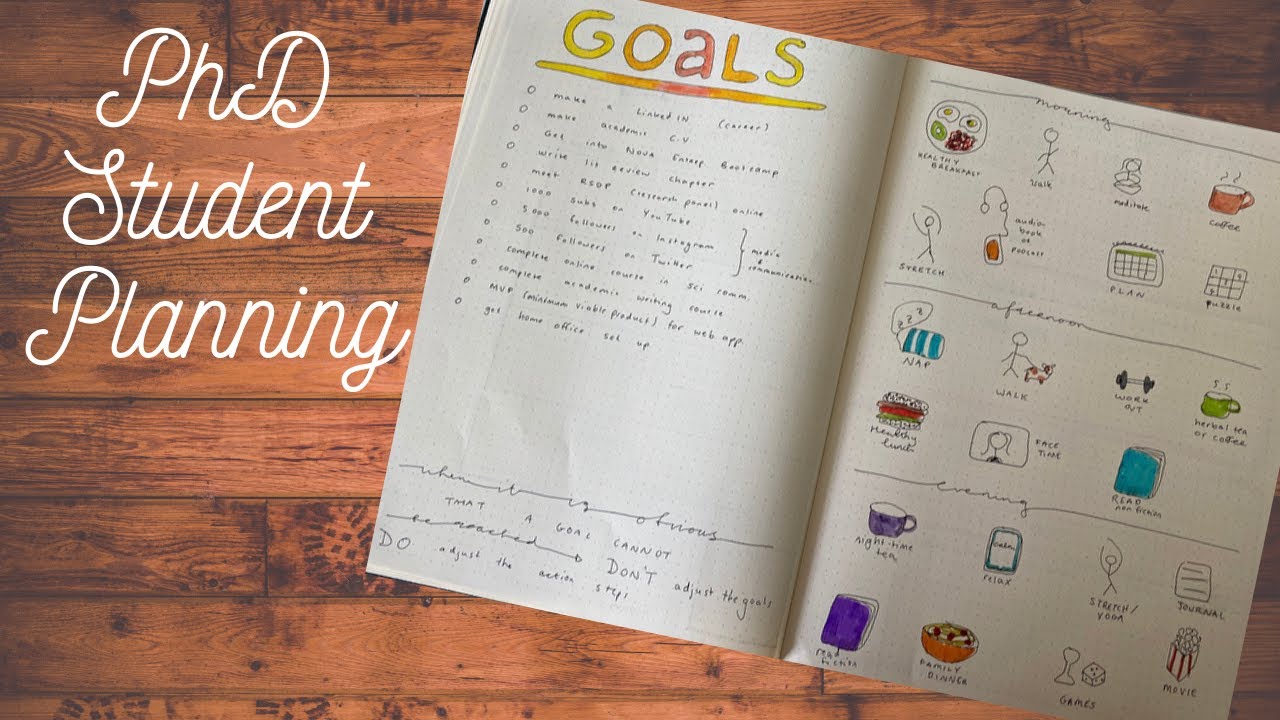 PhD
Student
Planning
GOALS
make a LinkedIN (career)
make academic C.V
Get into Nova Entrep. Bootcamp
write lit review chapter
meet RSDP (research panel) online
1000 subs on YouTube
5000 followers on Instagram
500 followers on Twitter
media & communication
complete online course in sci comm.
complete academic writing course
MVP (minimum viable product) for web app.
get home office set up
when it is obvious
THAT A GOAL CANNOT
be reached
DON'T adjust the goals
DO adjust the action steps
morning
HEALTHY
BREAKFAST
walk
meditate
coffee
STRETCH
audio-
book or
podcast
PLAN
puzzle
afternoon
zzz
NAP
WALK
WORK
OUT
herbal tea
or coffee
Healthy
lunch
FACE
TIME
READ
non fiction
evening
night-time
tea
calm
relax
STRETCH/
YOGA
JOURNAL
read
fiction
FAMILY
DINNER
GAMES
MOVIE